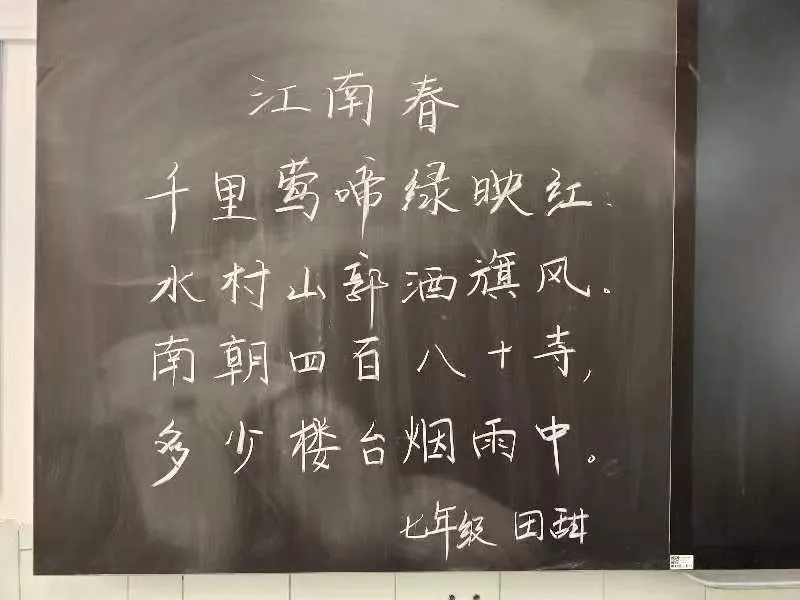 江南春
千里莺啼绿映红
水村山郭酒旗风。
南朝四百八十寺,
多少楼台烟雨中。
七年级 田甜